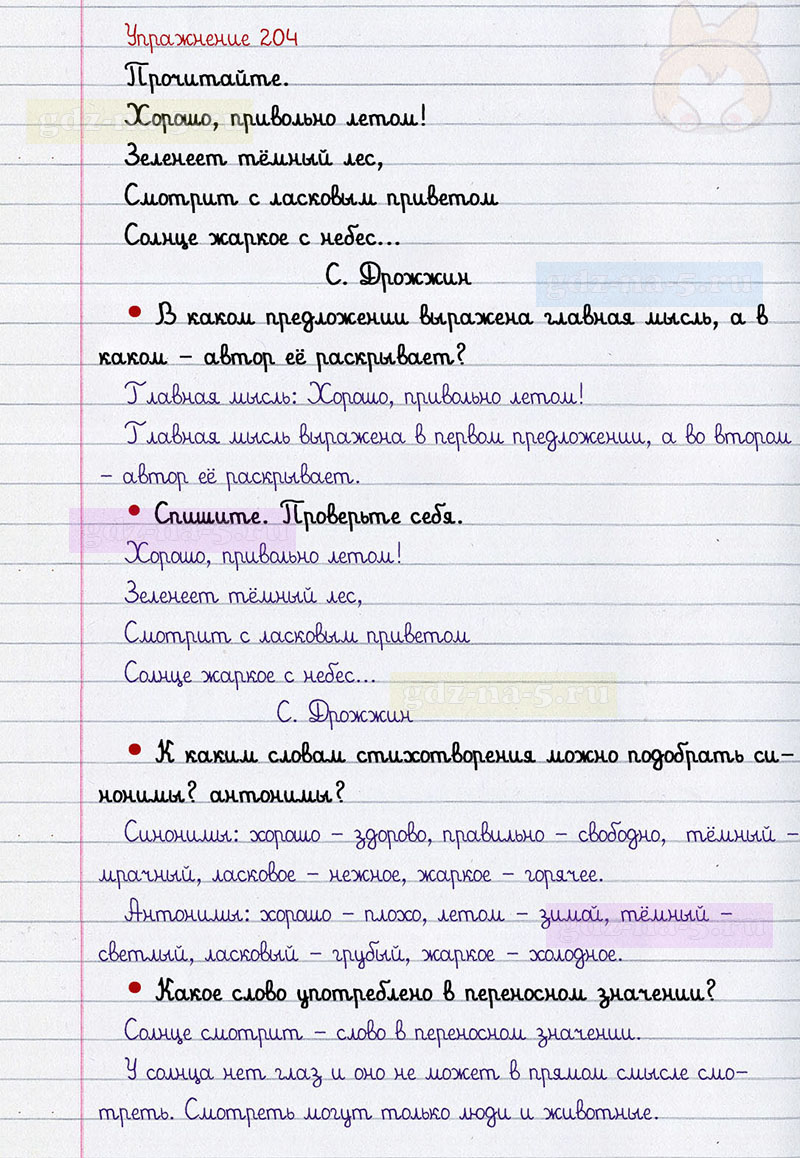 Упражнение 204
Прочитайте.
gdz-na-5.ru
Хорошо, привольно летом!
Зеленеет тёмный лес,
Смотрит с ласковым приветом
Солнце жаркое с небес...
С. Дрожжин
gdz-na-5.ru
• В каком предложении выражена главная мысль, а в
каком – автор её раскрывает?
Главная мысль: Хорошо, привольно летом!
Главная мысль выражена в первом предложении, а во втором
– автор её раскрывает.
• Спишите. Проверьте себя.
gdz-na-5.ru
Хорошо, привольно летом!
Зеленеет тёмный лес,
Смотрит с ласковым приветом
Солнце жаркое с небес...
gdz-na-5.ru
С. Дрожжин
• К каким словам стихотворения можно подобрать си-
нонимы? антонимы?
Синонимы: хорошо – здорово, правильно – свободно, тёмный –
мрачный, ласковое – нежное, жаркое – горячее.
Антонимы: хорошо – плохо, летом – зимой, тёмный –
gdz-na-5.ru
светлый, ласковый – грубый, жаркое – холодное.
• Какое слово употреблено в переносном значении?
Солнце смотрит – слово в переносном значении.
У солнца нет глаз и оно не может в прямом смысле смо-
треть. Смотреть могут только люди и животные.